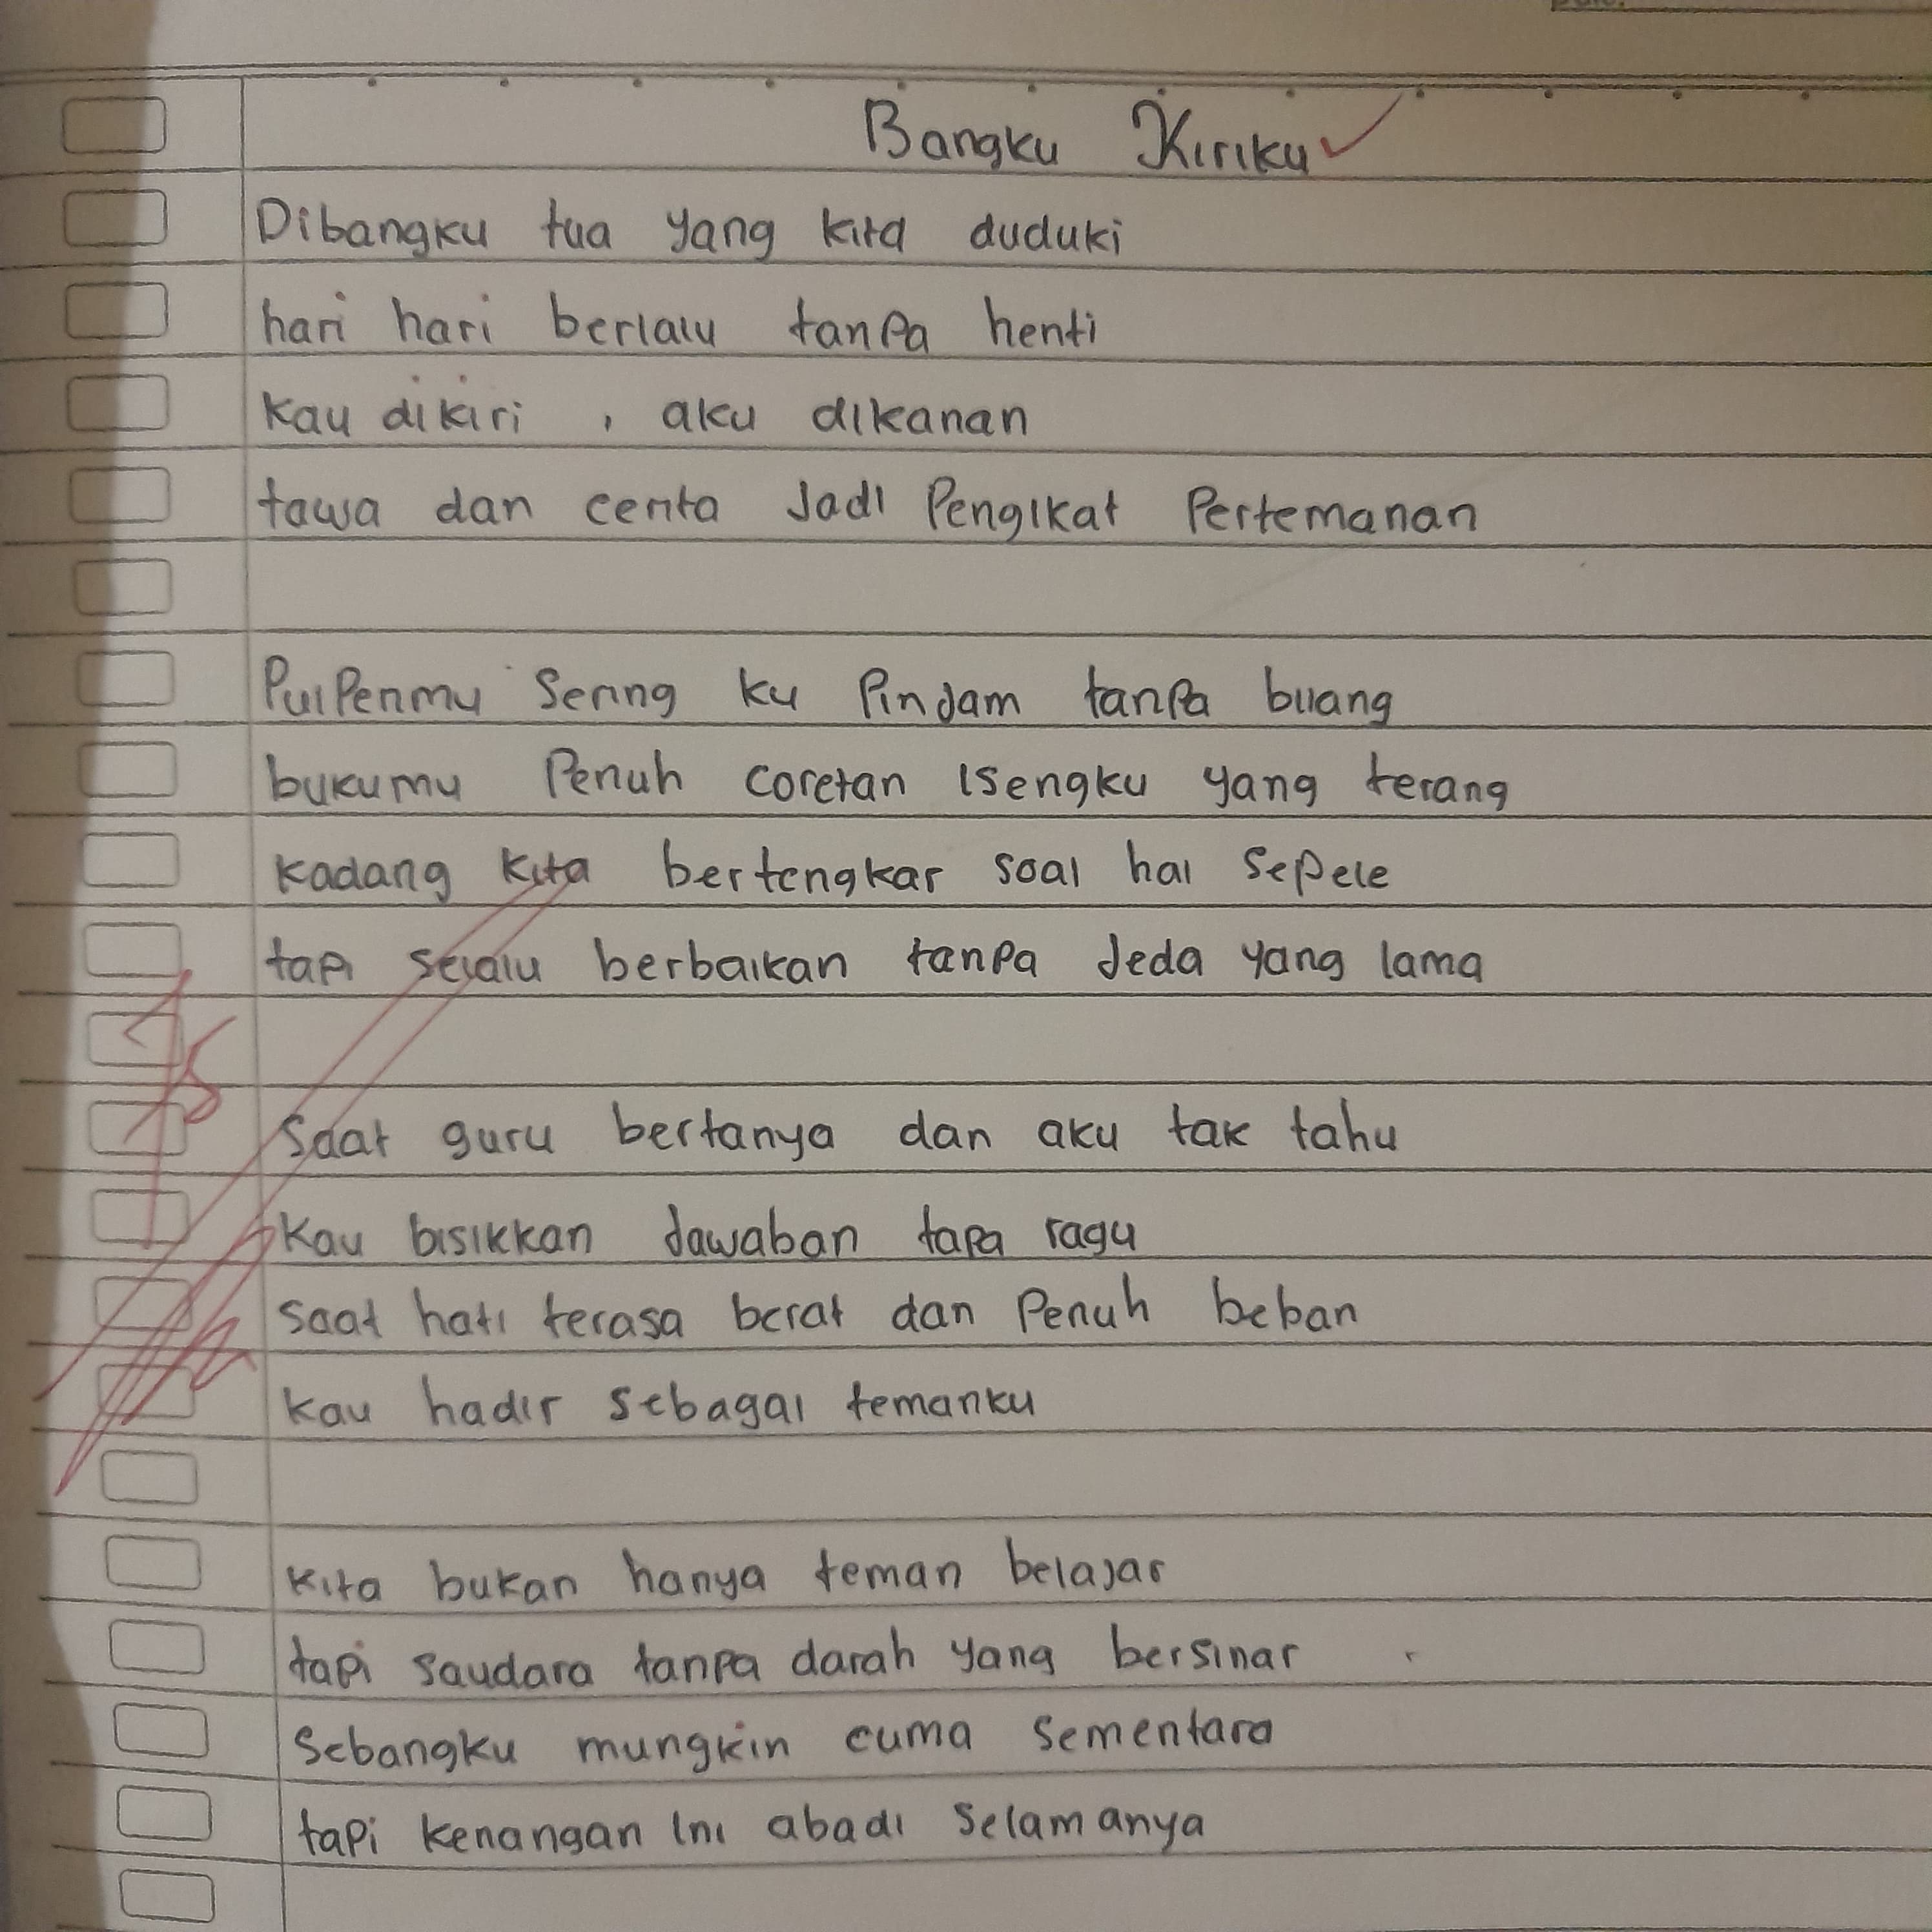 Bangku Kiriku
Dibangku tua yang kita duduki
hari hari berlalu tanpa henti
kau dikiri , aku dikanan
tawa dan cerita Jadi Pengikat Pertemanan
Pulpenmu Sering ku Pinjam tanpa buang
bukumu Penuh coretan isengku yang terang
kadang kita bertengkar soal hal sepele
tapi selalu berbaikan tanpa Jeda yang lama
75
Saat guru bertanya dan aku tak tahu
Kau bisikkan Jawaban tapa ragu
saat hati terasa berat dan Penuh beban
kau hadir sebagai temanku
kita bukan hanya teman belajar
tapi saudara tanpa darah yang bersinar
Sebangku mungkin cuma sementara
tapi kenangan ini abadi selamanya